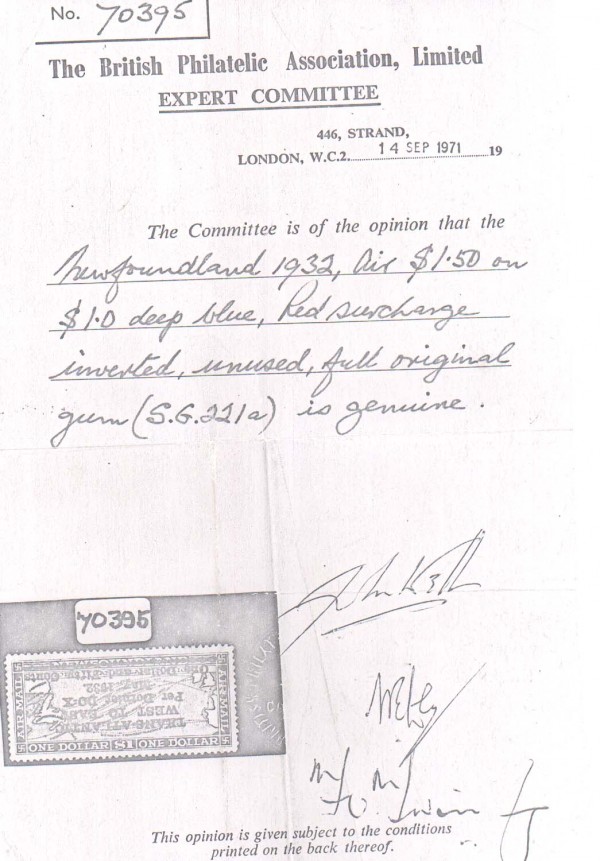 No. 70395
The British Philatelic Association, Limited
EXPERT COMMITTEE
446, STRAND,
LONDON, W.C.2. 14 SEP 1971 19
The Committee is of the opinion that the
Newfoundland 1932, Air $1.50 on
$1.0 deep blue, Red surcharge
inverted, unused, full original
gum (S.G.221a) is genuine.
70395
TRANS-ATLANTIC
WEST TO EAST
Per Dornier DO-X
May, 1932.
One Dollar and Fifty Cents
AIR MAIL
AIR MAIL
ONE DOLLAR $1 ONE DOLLAR
This opinion is given subject to the conditions
printed on the back thereof.